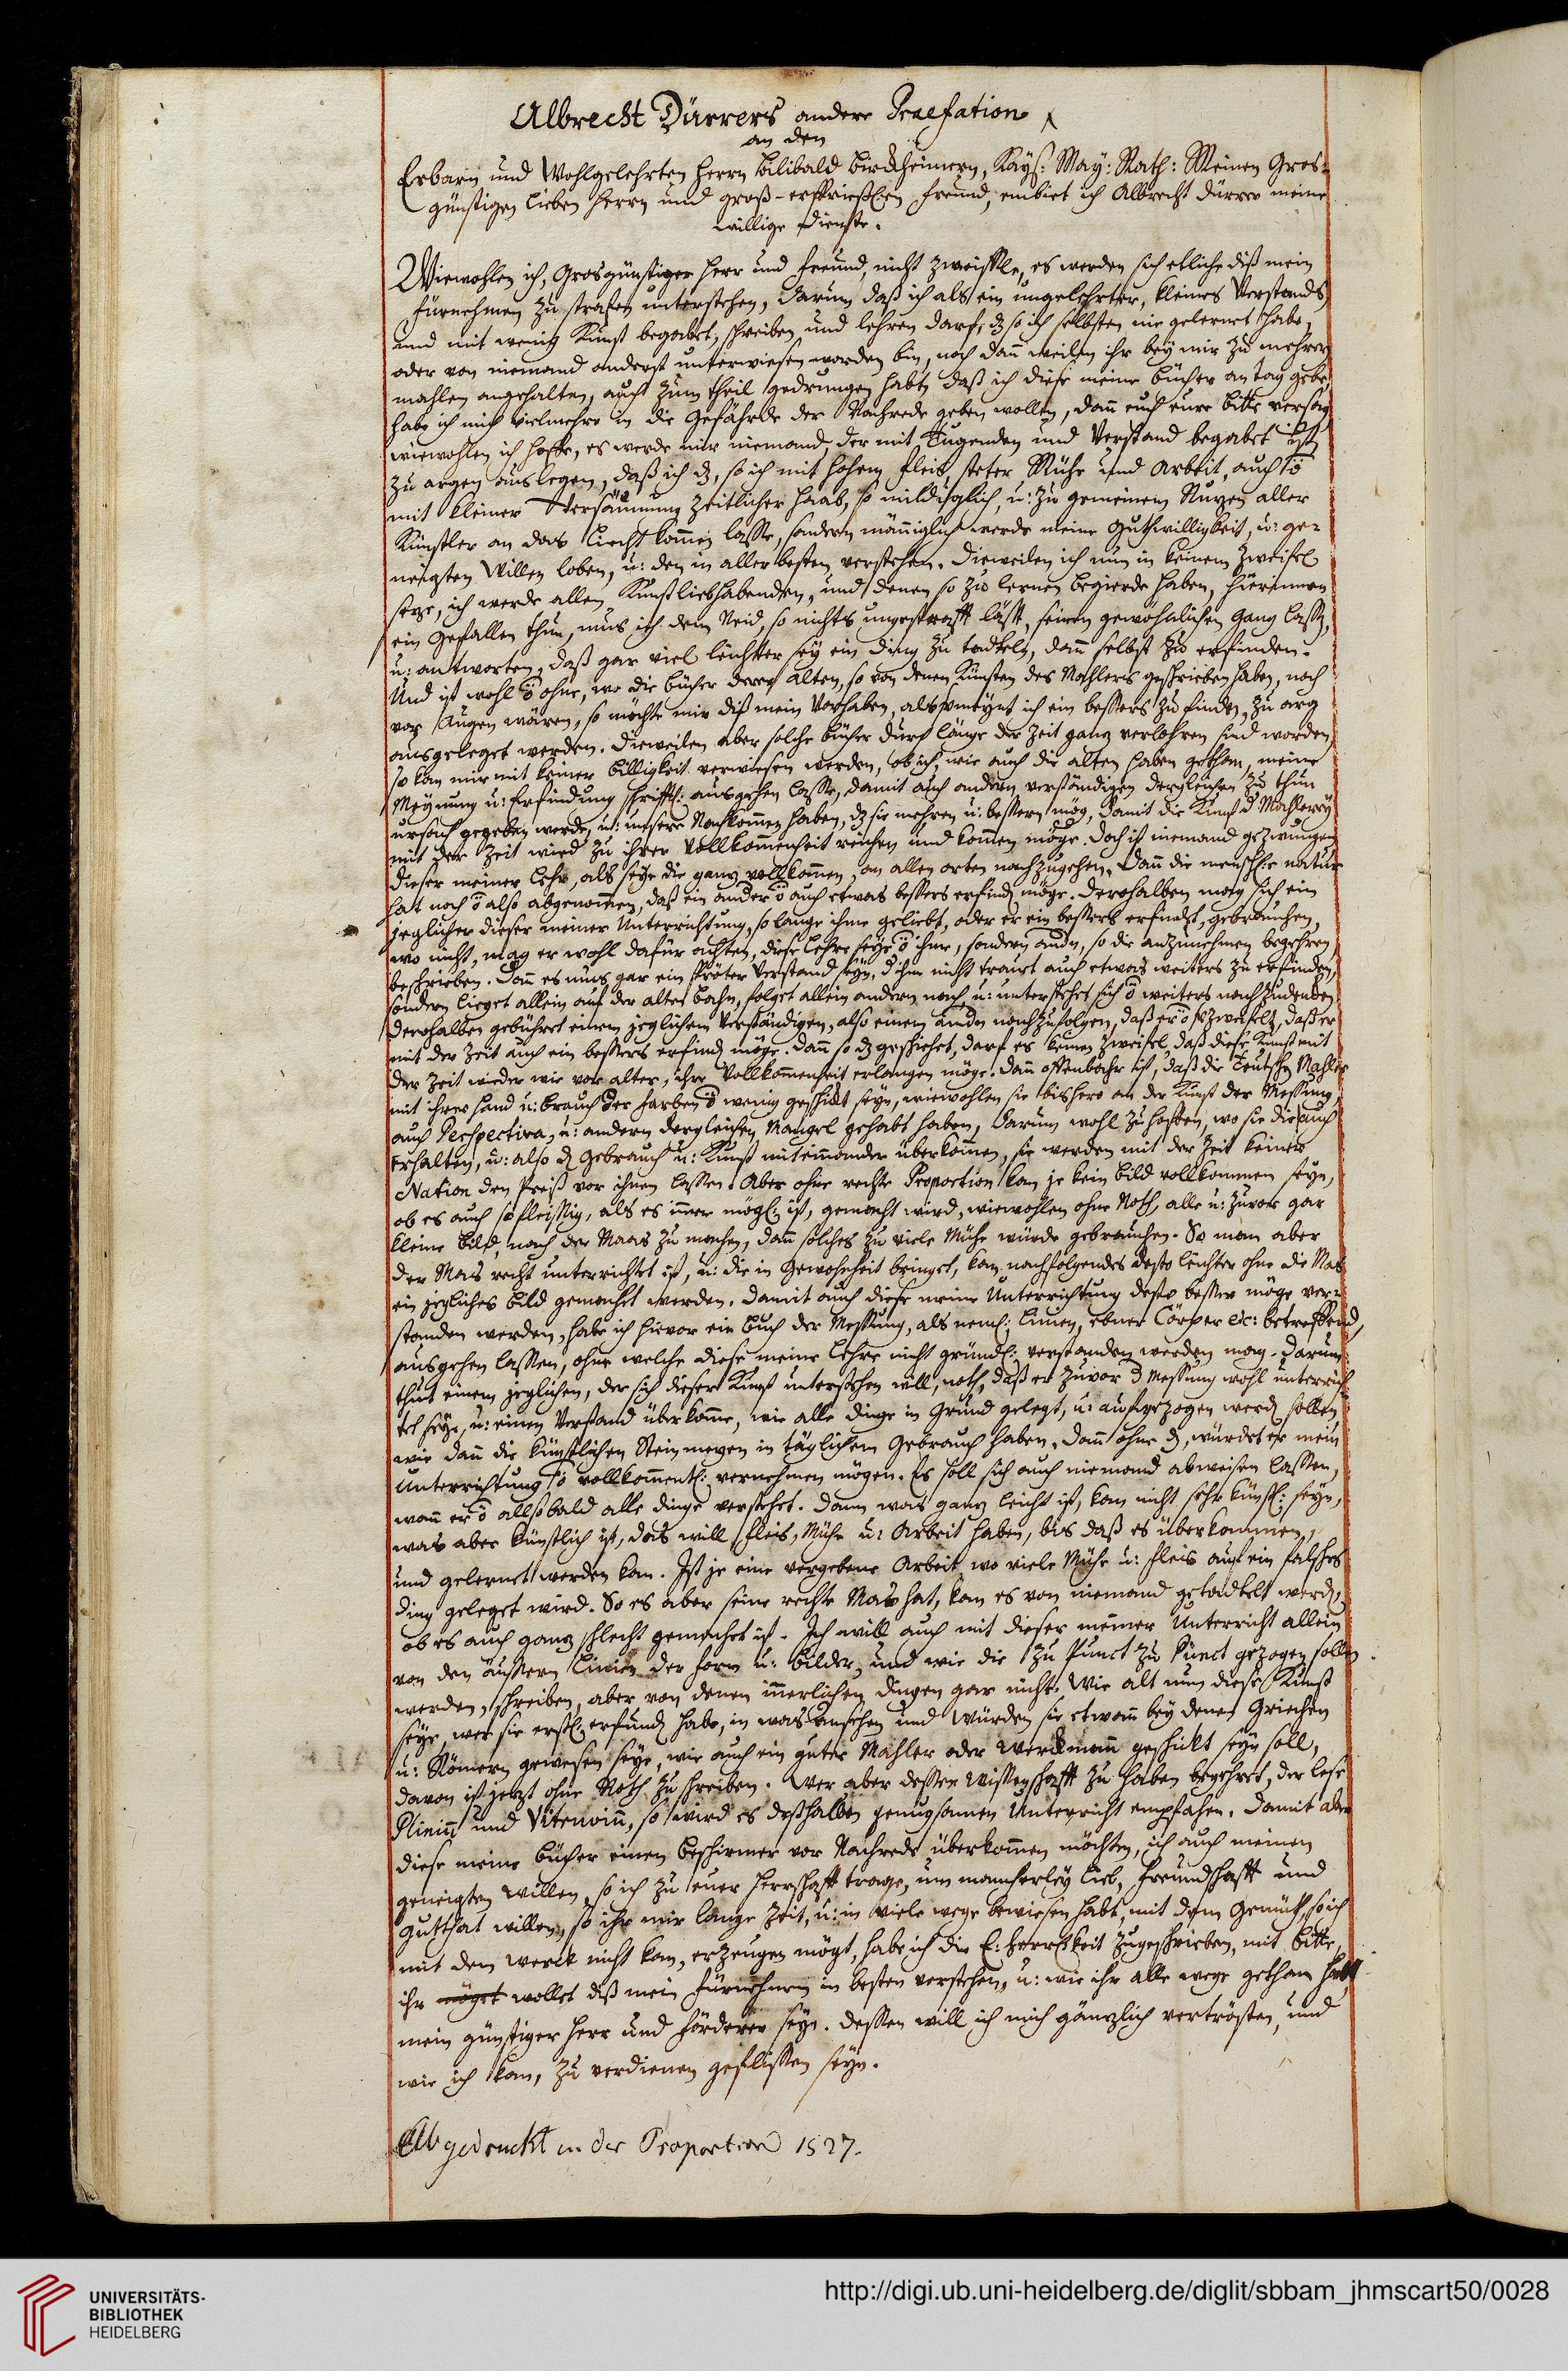 Albrecht Dürrers andere Praefation
an den
Erbarn und Wohlgelehrten Herrn Bilibald Birckheimern, Kays: May: Rath: Meinen Gros-
günstigen lieben Herrn und groß-ersprießlen Freund, embiet ich Albrecht Dürrer meine
willige dienste.
Wiewohlen ich, Grosgünstiger Herr und freund, nicht zweiffle, es werden sich etliche diß mein
fürnehmen zu strafen unterstehen, darum daß ich als ein ungelehrter, kleines Verstands,
und mit wenig Kunst begabet, schreiben und lehren darf, dz so ich selbsten nie gelernet habe,
oder von niemand anderst unterwiesen worden bin, noch dan̄ weilen ihr bey mir zu mehrer
mahlen angehalten, auch zum theil gedrungen habt, daß ich diese meine bücher an tag gebe,
habe ich mich vielmehr in die Gefährde der Nachrede geben wollen, dan̄ euch eure bitte versag
wiewohlen ich hoffe, es werde mir niemand, der mit Tugenden und Verstand begabet ist,
zu argen auslegen, daß ich dz, so ich mit hohem fleis, steter Mühe und Arbeit, auch ō
mit kleiner Versäumung zeitlicher Haab, so mildiglich, u: zu gemeinem Nuzen aller
Künstler an das Liecht kom̄en lasse, sondern män̄iglich werde meine Guthwilligkeit, u: ge-
neigten Willen loben, u: den in aller besten verstehen. Dieweilen ich nun in keinem Zweifel
seze, ich werde allen Kunstliebhabenden, und denen so zu lernen begierde haben, hierinnen
ein gefallen thun, mus ich dem Neid, so nichts ungestrafft läst, seinen gewöhnlichen Gang lassen,
u: antworten, daß gar viel leichter sey ein ding zu tadteln, dan̄ selbst zu erfinden.
Und ist wohl ō ohne, wo die bücher derer alten, so von denen Künsten des Mahlers geschrieben haben, noch
vor Augen wären, so möchte mir diß mein Vorhaben, als vermeynt ich ein bessers zu finden, zu arg
ausgeleget werden. Dieweilen aber solche bücher durch länge der zeit ganz verlohren sind worden,
so kan mir mit keiner billigkeit verwiesen werden, ob ich, wie auch die alten haben gethan, meine
Meynung u: Erfindung schrifftl: ausgehen lasse, damit auch andern verständigen dergleichen zu thun
ursach gegeben werde, u: unsere Nachkom̄en haben, dz sie mehren u: bessern mög, damit die Kunst d Mahlerey
mit der Zeit wied zu ihrer Vollkom̄enheit reichen und kom̄en möge. Doch ist niemand gezwungen
dieser meiner Lehr, als seye die ganz vollkom̄en, an allen orten nachzugehen. Dan̄ die menschl: natur
hat noch ō also abgenom̄en, daß ein ander ō auch etwas bessers erfind möge. Derohalben mag sich ein
jeglicher dieser meiner Unterrichtung, so lange ihme geliebt, oder er ein bessers erfindet, gebrauchen,
wo nicht, mag er wohl dafür achten, diese Lehre seye ō ihme, sondern andn, so die anzunehmen begehren,
beschrieben. Dan̄ es mus gar ein Verstand seyn, d ihm nicht traut auch etwas weiters zu erfinden,
sondern lieget allein auf der alten bahn, folget allein andern nach, u: unterstehet sich ō weiters nachzudencken.
derohalben gebühret einem jeglichem Verständigen, also einem andn nachzufolgen, daß er ō verzweifelt, daß er
mit der Zeit auch ein bessers erfind möge. Dan̄ so dz geschiehet, darf es keinen Zweifel, daß diese Kunst mit
der Zeit wieder wie vor alter, ihre Vollkom̄enheit erlangen möge. Dan̄ offenbahr ist, daß die Teutschen Mahler
mit ihrer Hand u: brauch der farben ō wenig geschickt seyn, wiewohlen sie bishero an der Kunst der Messung,
auch Perspectiva, u: andern dergleichen Mangel gehabt haben, darum wohl zu hoffen, wo sie die auch
erhalten, u: also dz gebrauch u: Kunst miteinander überkom̄en, sie werden mit der Zeit keiner
Nation den Preiß vor ihnen lassen. Aber ohne rechte Proportion kan je kein bild vollkommen seyn,
ob es auch so fleissig, als es im̄er mögl: ist, gemacht wird, wiewohlen ohne Noth, alle u: zuvor gar
kleine bild, nach der Maas zu machen, dan̄ solches zu viele Mühe würde gebrauchen. So man aber
der Mas recht unterrichtet ist, u: die in Gewohnheit bringet, kan nachfolgendes desto leichter ohne die Mas
ein jegliches bild gemacht werden. Damit auch diese meine Unterrichtung desto besser möge ver-
standen werden, habe ich hievor ein Buch der Messung, als neml: Linien, ebner Cörper etc: betreffend,
ausgehen lassen, ohne welche diese meine Lehre nicht gründl: verstanden werden mag. Darum
thut einem jeglichen, der sich dieser Kunst unterstehen will, noth, daß er zuvor d Messung wohl unterrich-
tet seye, u: einen Verstand überkom̄e, wie alle dinge in Grund gelegt, u: aufgezogen werd sollen
wie dan̄ die künstlichen Steinmezen in täglichem Gebrauch haben. Dan̄ ohne dz, würdet er mein
Unterrichtung ō vollkom̄entl: vernehmen mögen. Es soll sich auch niemand abweisen lassen,
wan̄ er ō allsobald alle dinge verstehet. Dann was ganz leicht ist, kan nicht sehr künstl: seyn,
was aber künstlich ist, das will fleis, Mühe u: Arbeit haben, bis daß es überkommen,
und gelernet werden kan. Ist je eine vergebene Arbeit, wo viele Mühe u: fleis auf ein falsches
ding geleget wird. So es aber seine rechte Mas hat, kan es von niemand getadtelt werd,
ob es auch ganz schlecht gemachet ist. Ich will auch mit dieser meiner Unterricht allein
von den äussern Linien der form u: bilder, und wie die zu Punct zu Punct gezogen sollen
werden, schreiben, aber von denen in̄erlichen dingen gar nicht. Wie alt nun diese Kunst
seye, wer sie erstl: erfund habe, in was ansehen und Würden sie etwan̄ bey denen Griechen
u: Römern gewesen seye, wie auch ein guter Mahler oder Werckman̄ geschickt seyn soll,
davon ist jezt ohne Noth zu schreiben. Wer aber dessen Wissenschafft zu haben begehret, der lese
Plinium und Vitruvium, so wird er deßhalben genugsamen Unterricht empfahen. Damit aber
diese meine bücher einen beschirmer vor Nachrede überkom̄en möchten, ich auch meinen
geneigten willen, so ich zu euer Herrschafft trage, um mancherley Lieb, Freundschafft und
Gutthat willen, so ihr mir lange Zeit, u: in viele wege bewiesen habt, mit dem Gemüth, so ich
mit dem werck nicht kan, erzeugen mögt, habe ich die E: Herrlkeit zugeschrieben, mit bitte,
ihr möget wollet diß mein Fürnehmen in besten verstehen, u: wie ihr alle wege gethan habt,
mein günstiger Herr und förderer seyn. Dessen will ich mich gänzlich vertrösten, und
wie ich kan, zu verdienen geflissen seyn.
Abgedruckt in der Proportion 1527.
UNIVERSITÄTS-
BIBLIOTHEK
HEIDELBERG
http://digi.ub.uni-heidelberg.de/diglit/sbbam_jhmscart50/0028